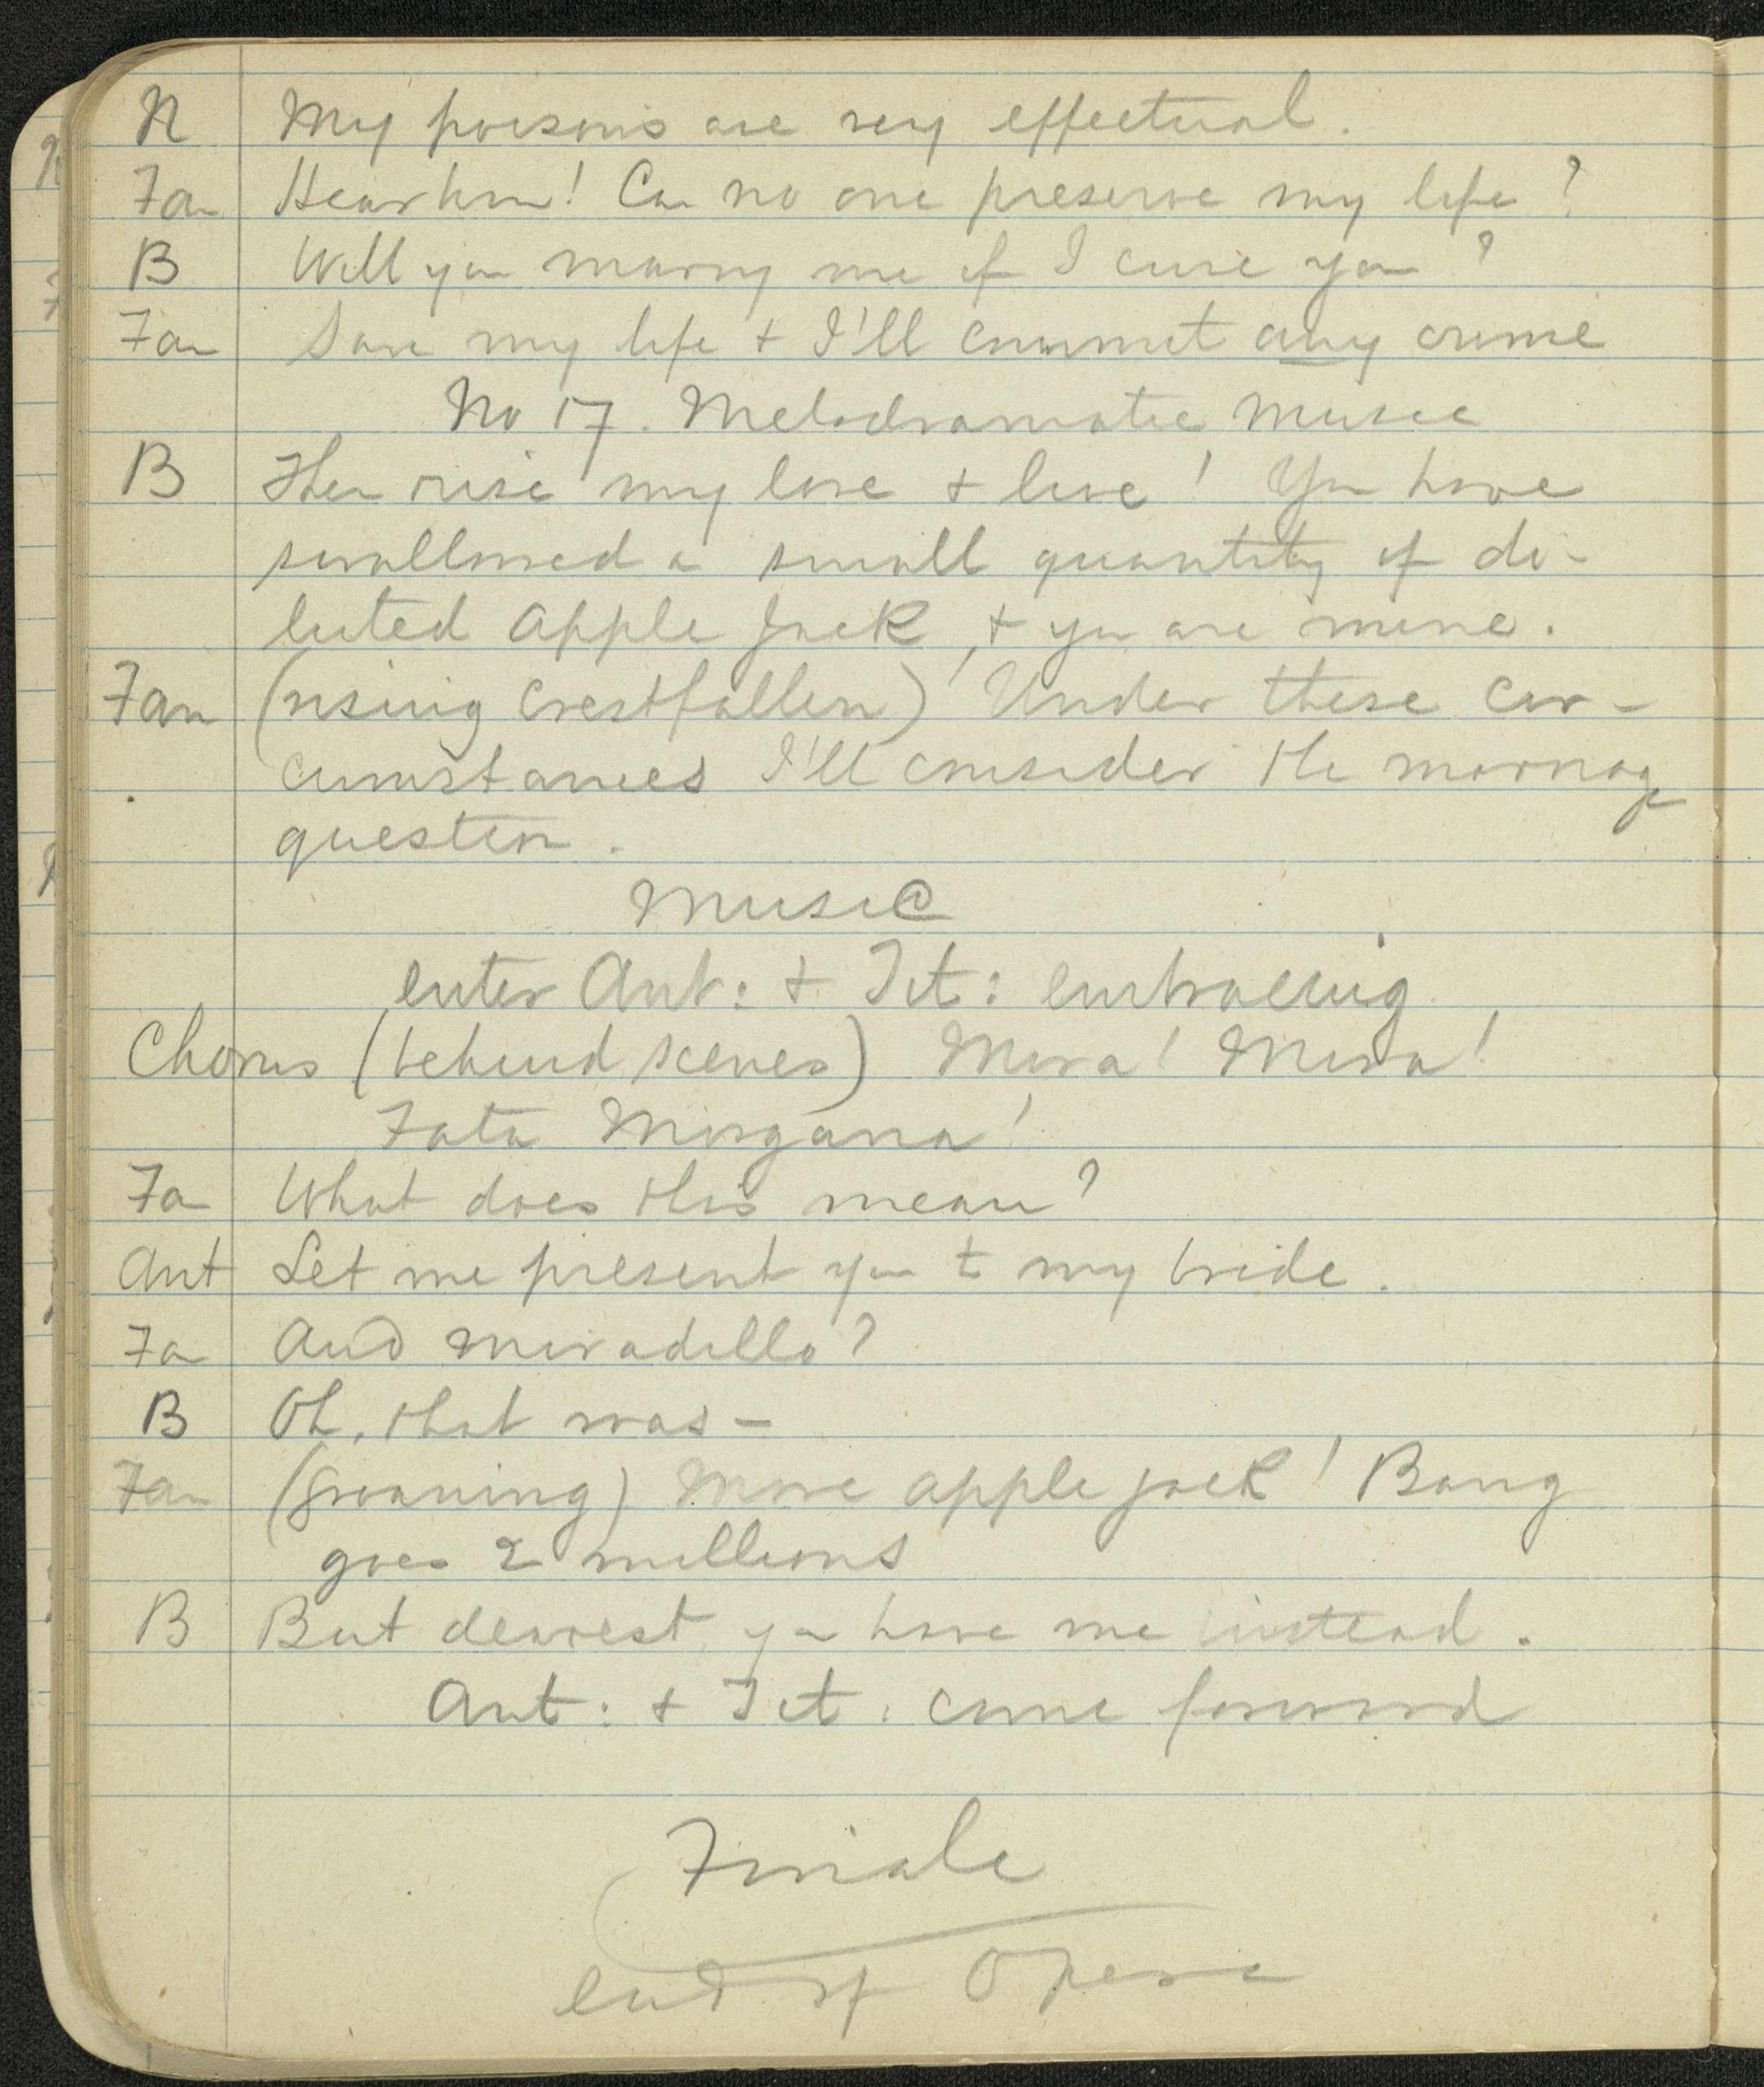 N My poisons are very effectual.
Fan Hear him! Can no one preserve my life?
B Will you marry me if I cure you?
Fan Save my life + I'll commit any crime
No 17. Melodramatic Music
B Then rise my love + live! You have
swallowed a small quantity of di-
luted apple jack, + you are mine.
Fan (rising crestfallen) Under these cir-
cumstances I'll consider the marriage
question.
Music
enter Ant: + Tit: embracing
Chorus (behind scenes) Mira! Mira!
Fata Morgana!
Fa What does this mean?
Ant Let me present you to my bride.
Fa And Miradillo?
B Oh, that was -
Fan (groaning) More apple jack! Bang
goes 2 millions
B But dearest you have me instead.
Ant: + Tit: come forward
Finale
end of Opera